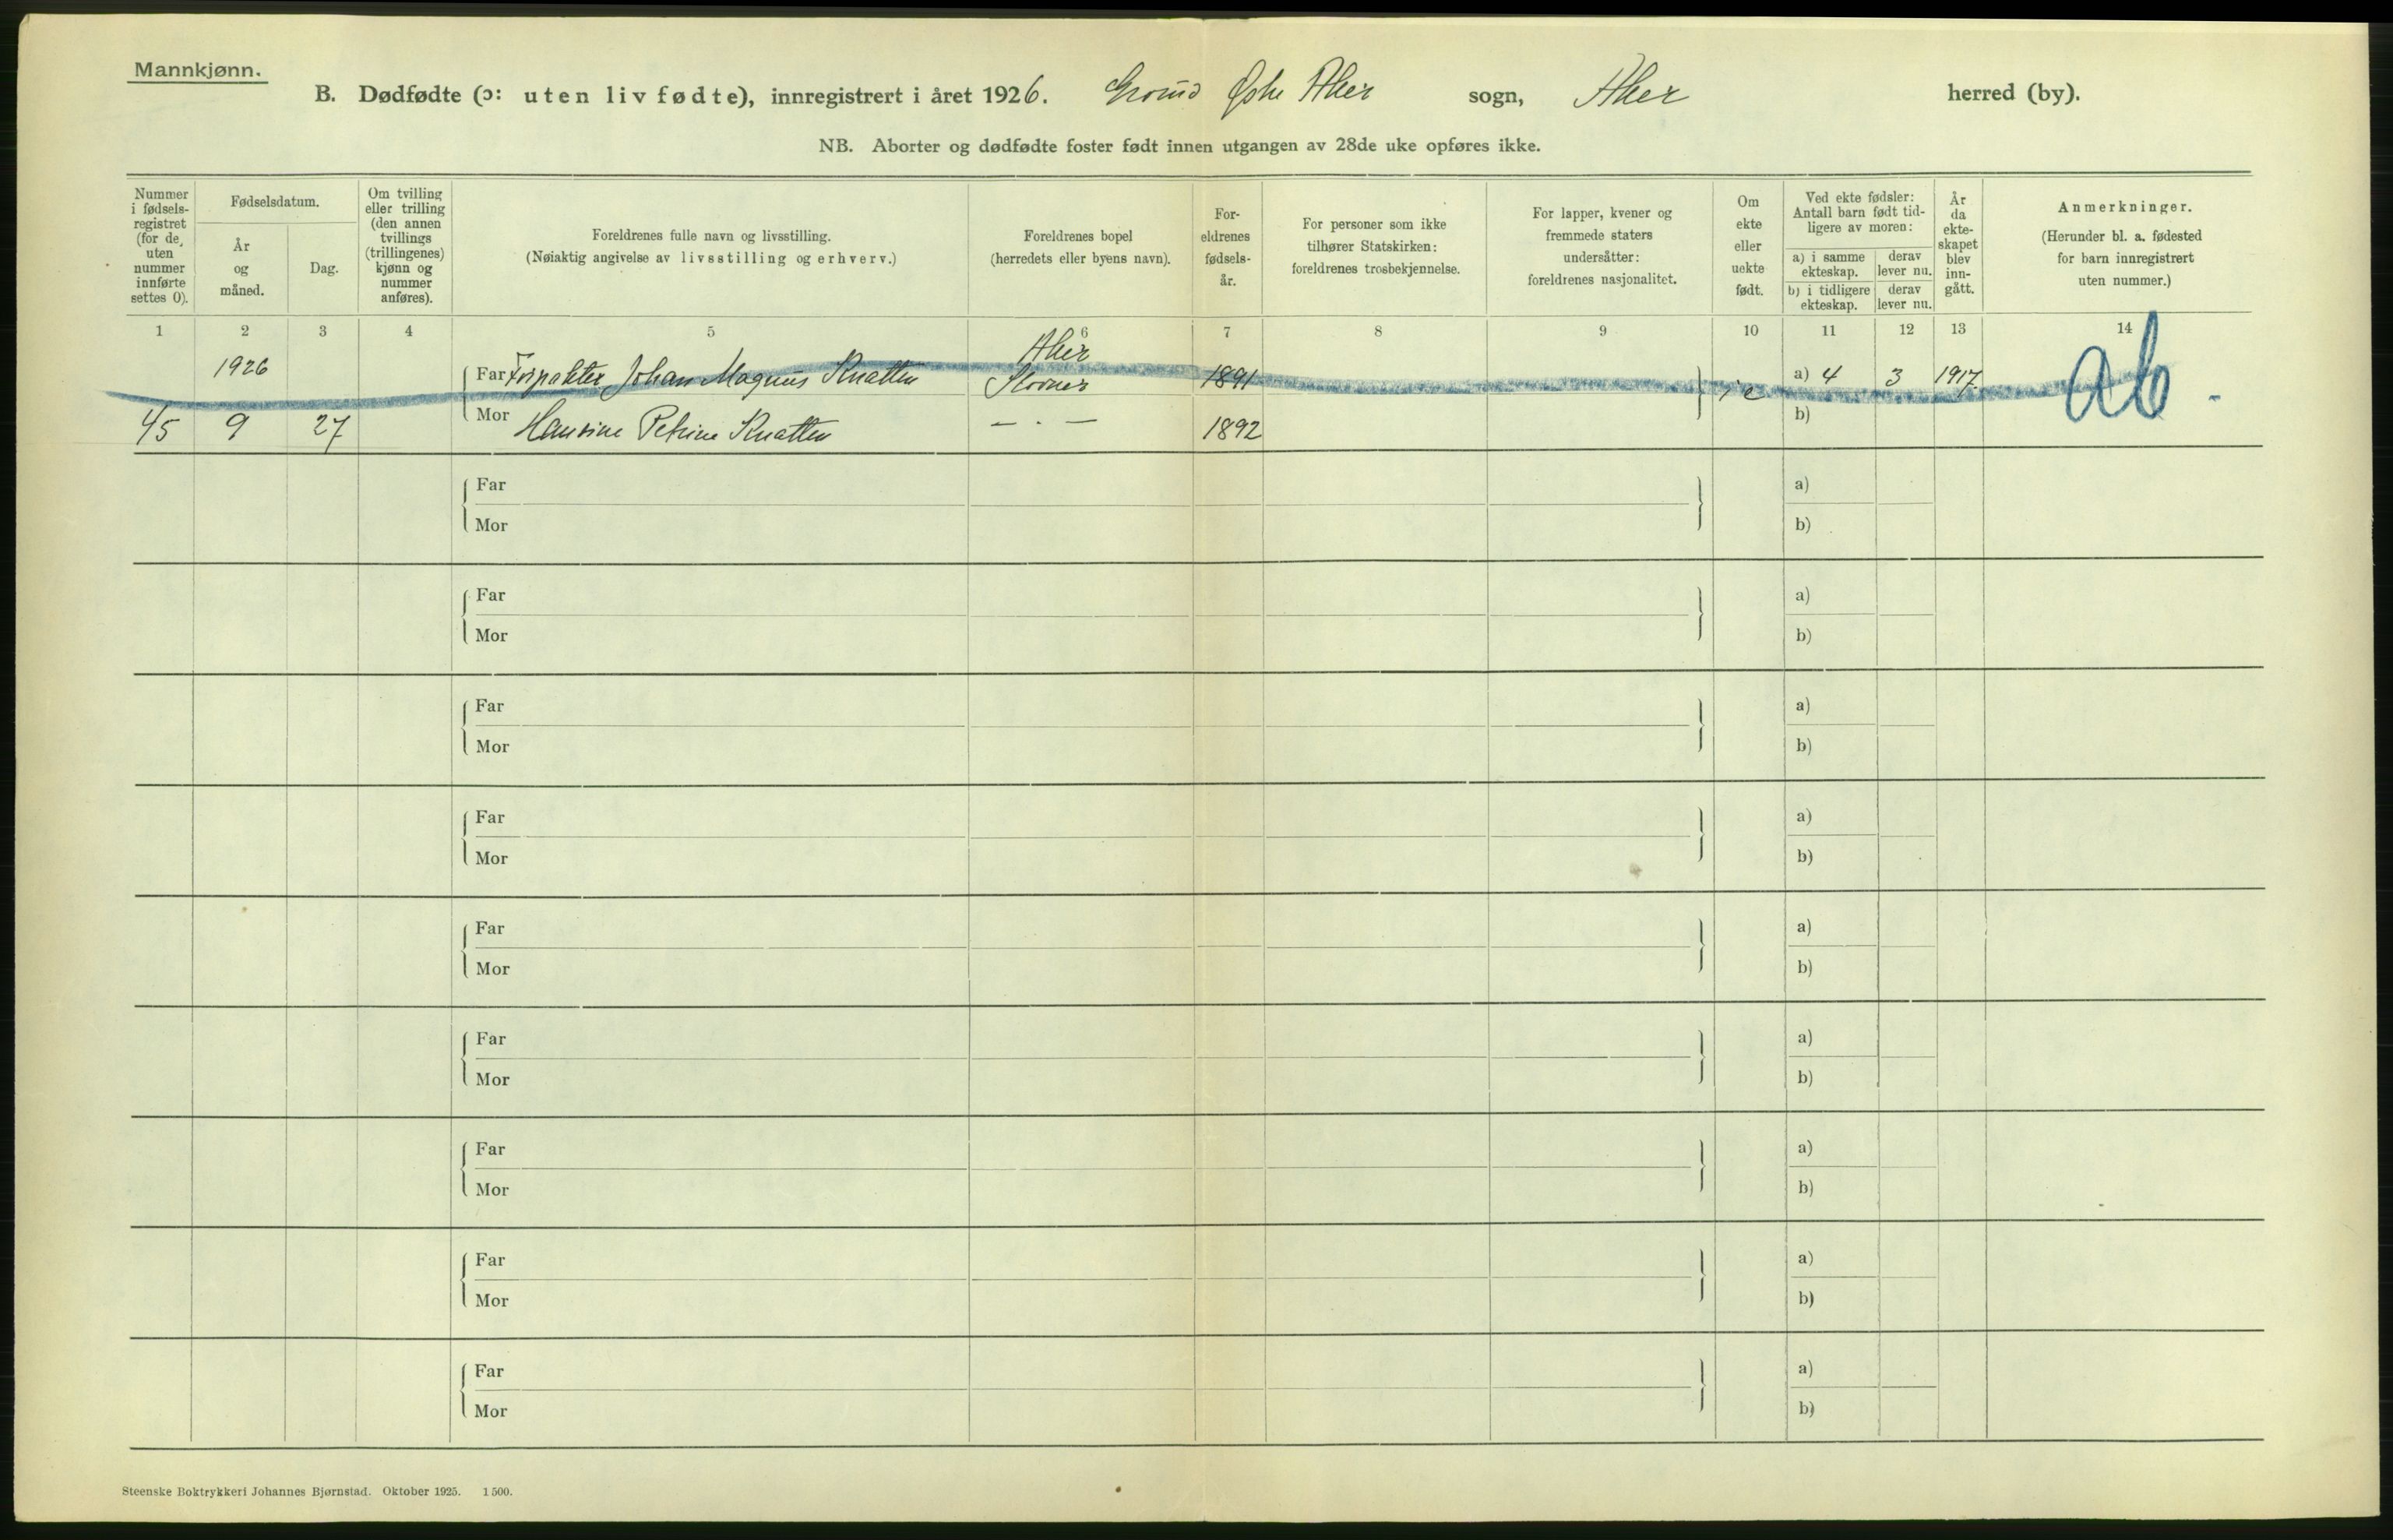 Mannkjønn.
B. Dødfødte (ɔ: uten liv fødte), innregistrert i året 1926. Grorud Østre Aker sogn, Aker herred (by).
NB. Aborter og dødfødte foster født innen utgangen av 28de uke opføres ikke.
Nummer i fødsels-registret (for de uten nummer innførte settes 0).
Fødselsdatum.
År og måned.
Dag.
Om tvilling eller trilling (den annen tvillings (trillingenes) kjønn og nummer anføres).
Foreldrenes fulle navn og livsstilling.
(Nøiaktig angivelse av livsstilling og erhverv.)
Foreldrenes bopel
(herredets eller byens navn).
For-eldrenes fødsels-år.
For personer som ikke tilhører Statskirken: foreldrenes trosbekjennelse.
For lapper, kvener og fremmede staters undersåtter: foreldrenes nasjonalitet.
Om ekte eller uekte født.
Ved ekte fødsler: Antall barn født tid-ligere av moren:
a) i samme ekteskap.
derav lever nu.
b) i tidligere ekteskap.
derav lever nu.
År da ekte-skapet blev inn-gått.
Anmerkninger.
(Herunder bl. a. fødested for barn innregistrert uten nummer.)
1 2 3 4 5 6 7 8 9 10 11 12 13 14
1926 Far Forpakter Johan Magnus Knatten Aker Stovner 1891 a) 4 3 1917 ab.
45 9 27 Mor Hansine Petrine Knatten — · — 1892 b)
Far a)
Mor b)
Far a)
Mor b)
Far a)
Mor b)
Far a)
Mor b)
Far a)
Mor b)
Far a)
Mor b)
Far a)
Mor b)
Far a)
Mor b)
Far a)
Mor b)
Steenske Boktrykkeri Johannes Bjørnstad. Oktober 1925. 1500.